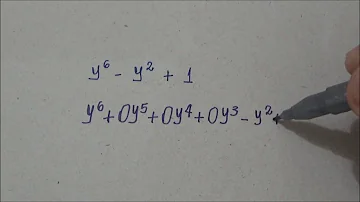 y⁶ - y² + 1
y⁶ + 0y⁵ + 0y⁴ + 0y³ - y² +